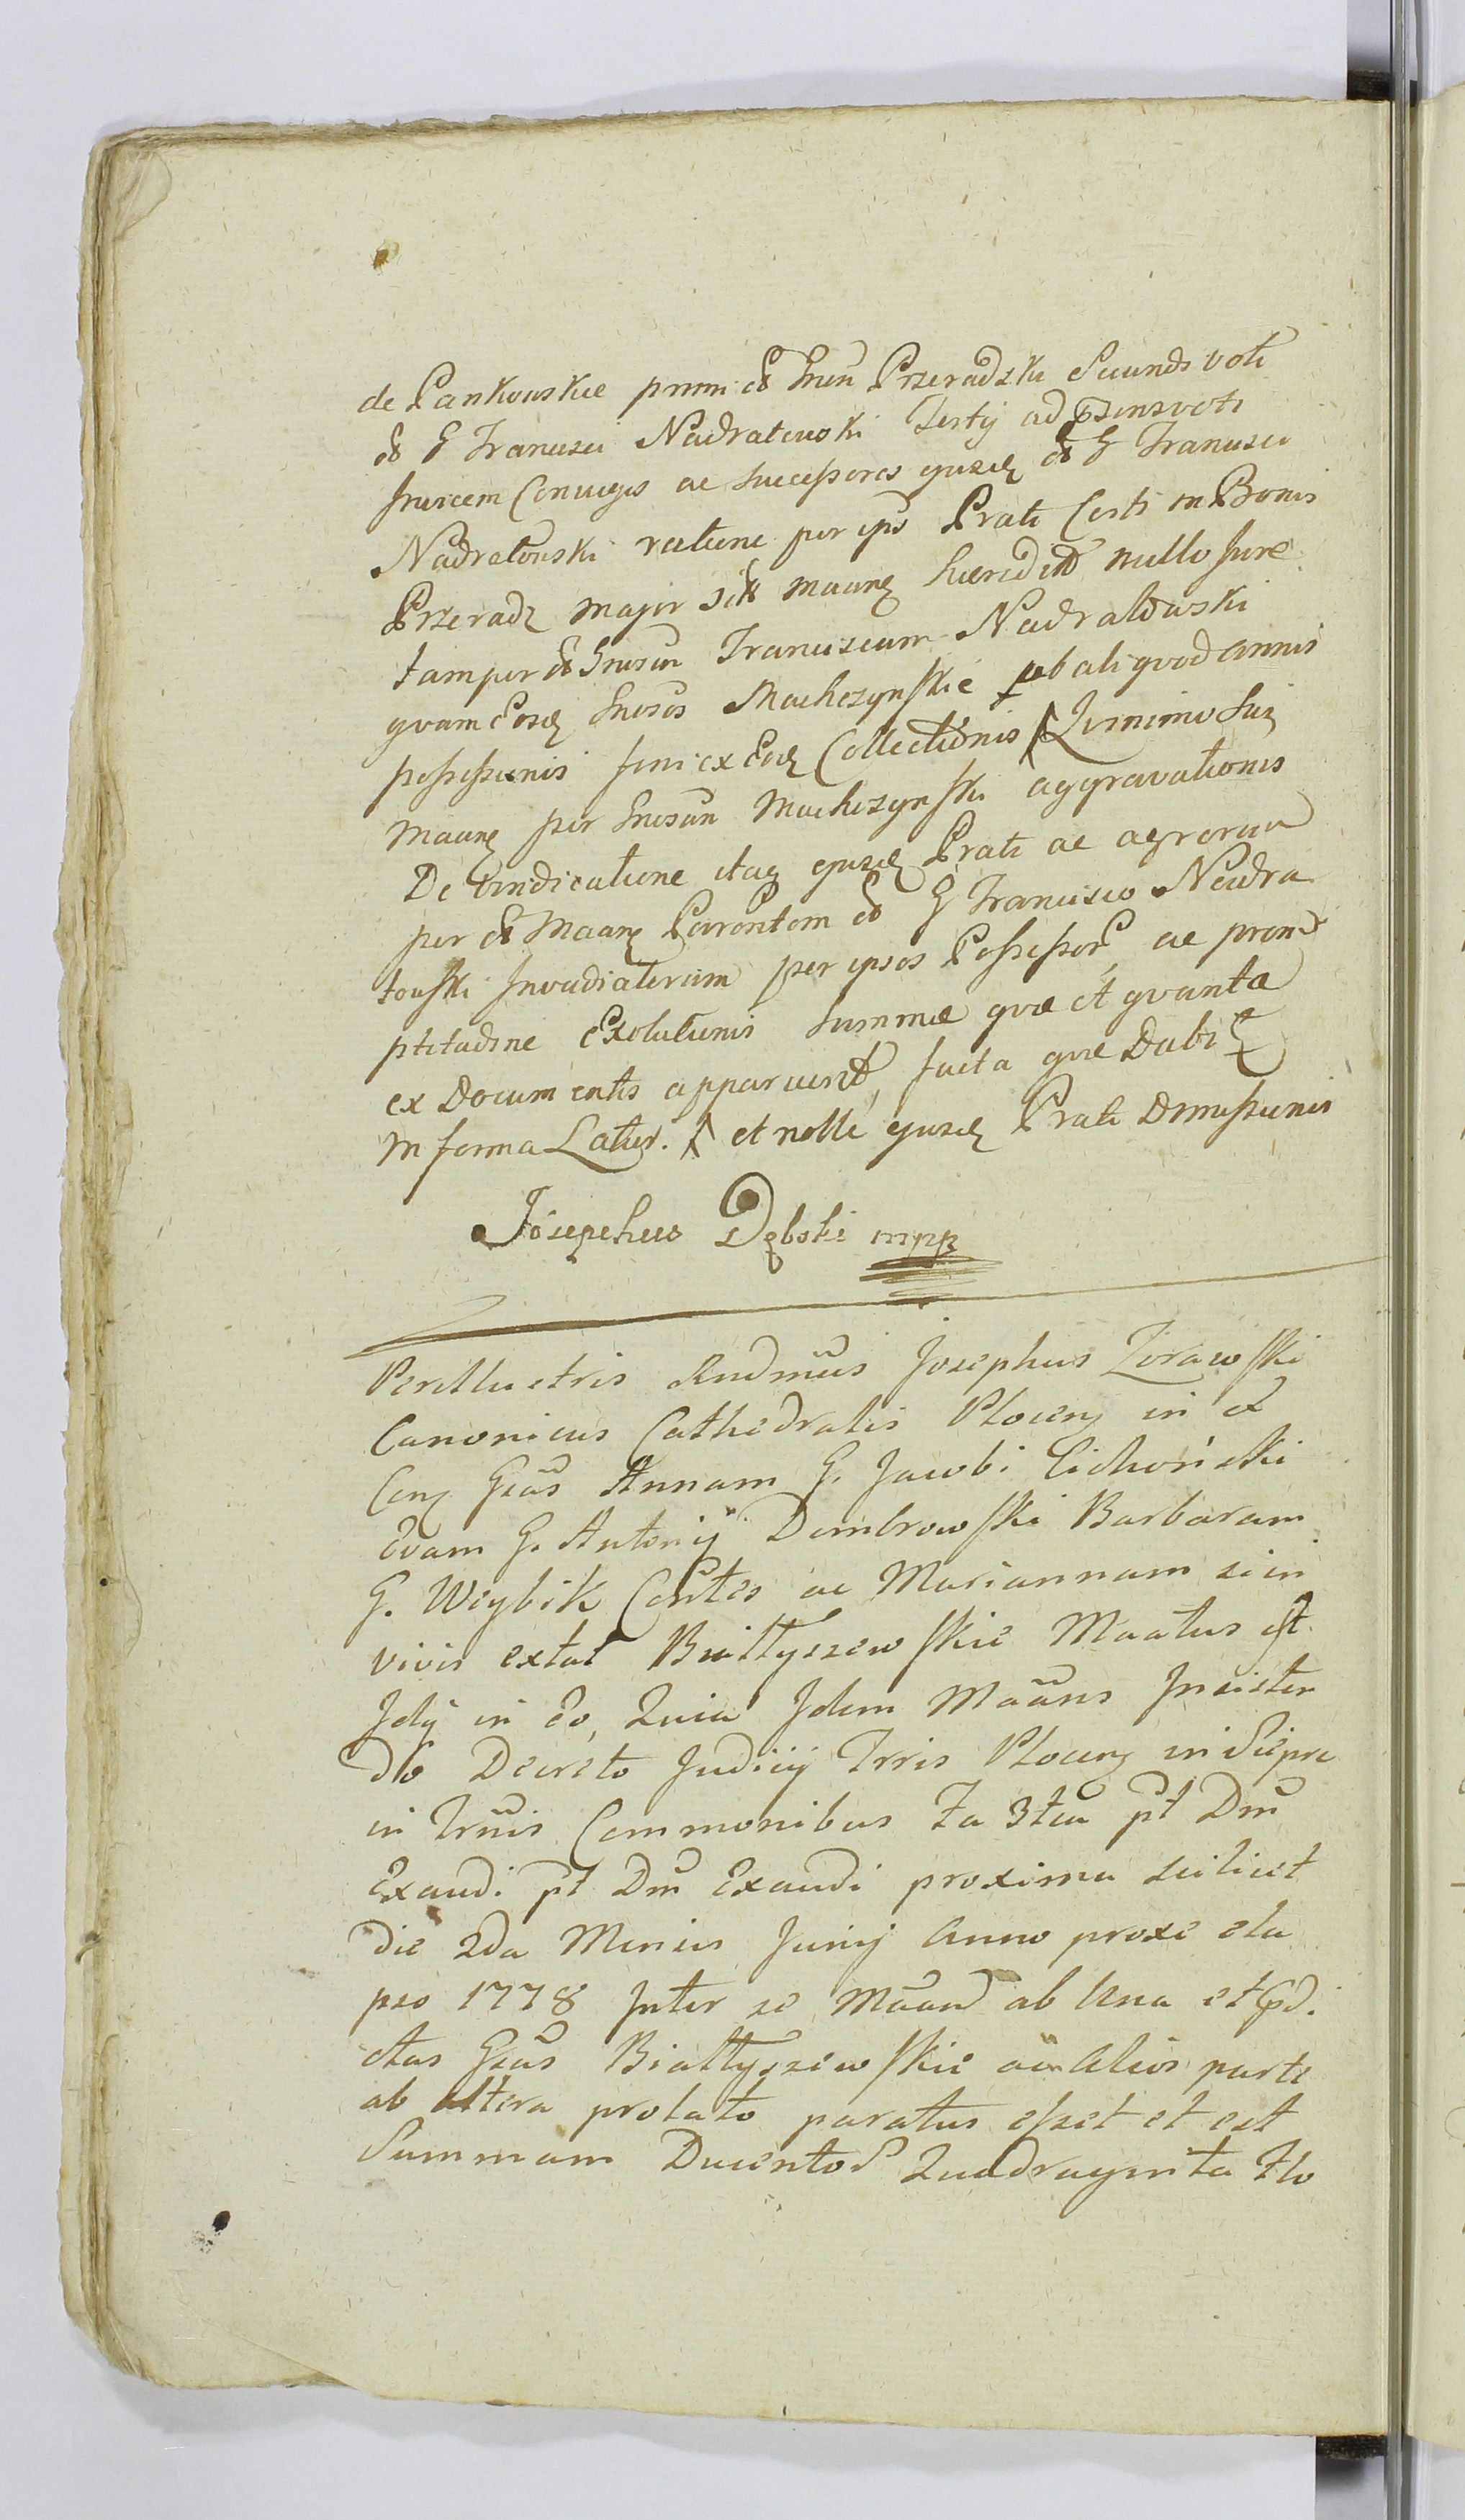 de Pankowskie primi et Gnen Przeradzki Secundi voti
et G Francisci Nadratowski Tertij ad psens voti
Invicem Conjuges ac Successores ejusdz et G Francisci
Nadratowski ratione per ipso Prati Certi in Bonis
Przeradz Major sitt maanz haeredit nullo Jure
tam per Gnosum Franciszum Nadratowski
qvam Eosdz Gnosos Machczynskie ab aliqvod annis
possessionis feni ex Eodz Collectionis Qvinimo Suiz
Maanz per Gnosum Machczynski aggravationis
De Vindicatione itaq ejusdz Prati ac agrorum
per Maanz Parentem G Francisco Nadra
towski Invadiatorum per ipsos Possessor ac promt
ptitudine Exolutionis Summae qvae et qvanta
ex Documentis apparuerit, facta qvae Dabit
in forma Latior. et nolle ejusdz Prati Dimissionis
Josephus Dębski mpp
Perillustris Rndmus Josephus Zorawski
Canonicus Cathedralis Plocenz in et
Conz Gsas Annam G. Jacobi Cichoński
Evam G. Antonij Dembrowski Barbaram
G. Weybik Contes ac Mariannam si in
vivis extat Biattyszewskie Maatus est
Idq in Eo, Quia Idem Maans Insisten
do Decreto Judicij Trris Plocenz in Sierpc
in Trmis Commonibus Fa 3tia pt Dm
Exaudi pt Dm Exaudi proxima scilicet
die 2da Mensis Junij Anno proxe ela
pso 1778 Inter se Maand ab Una et pdi
ctas Gsas Biattyszewskie ac Alios parte
ab altera prolato paratus esset et est
Summam Ducentor Quadraginta Flo